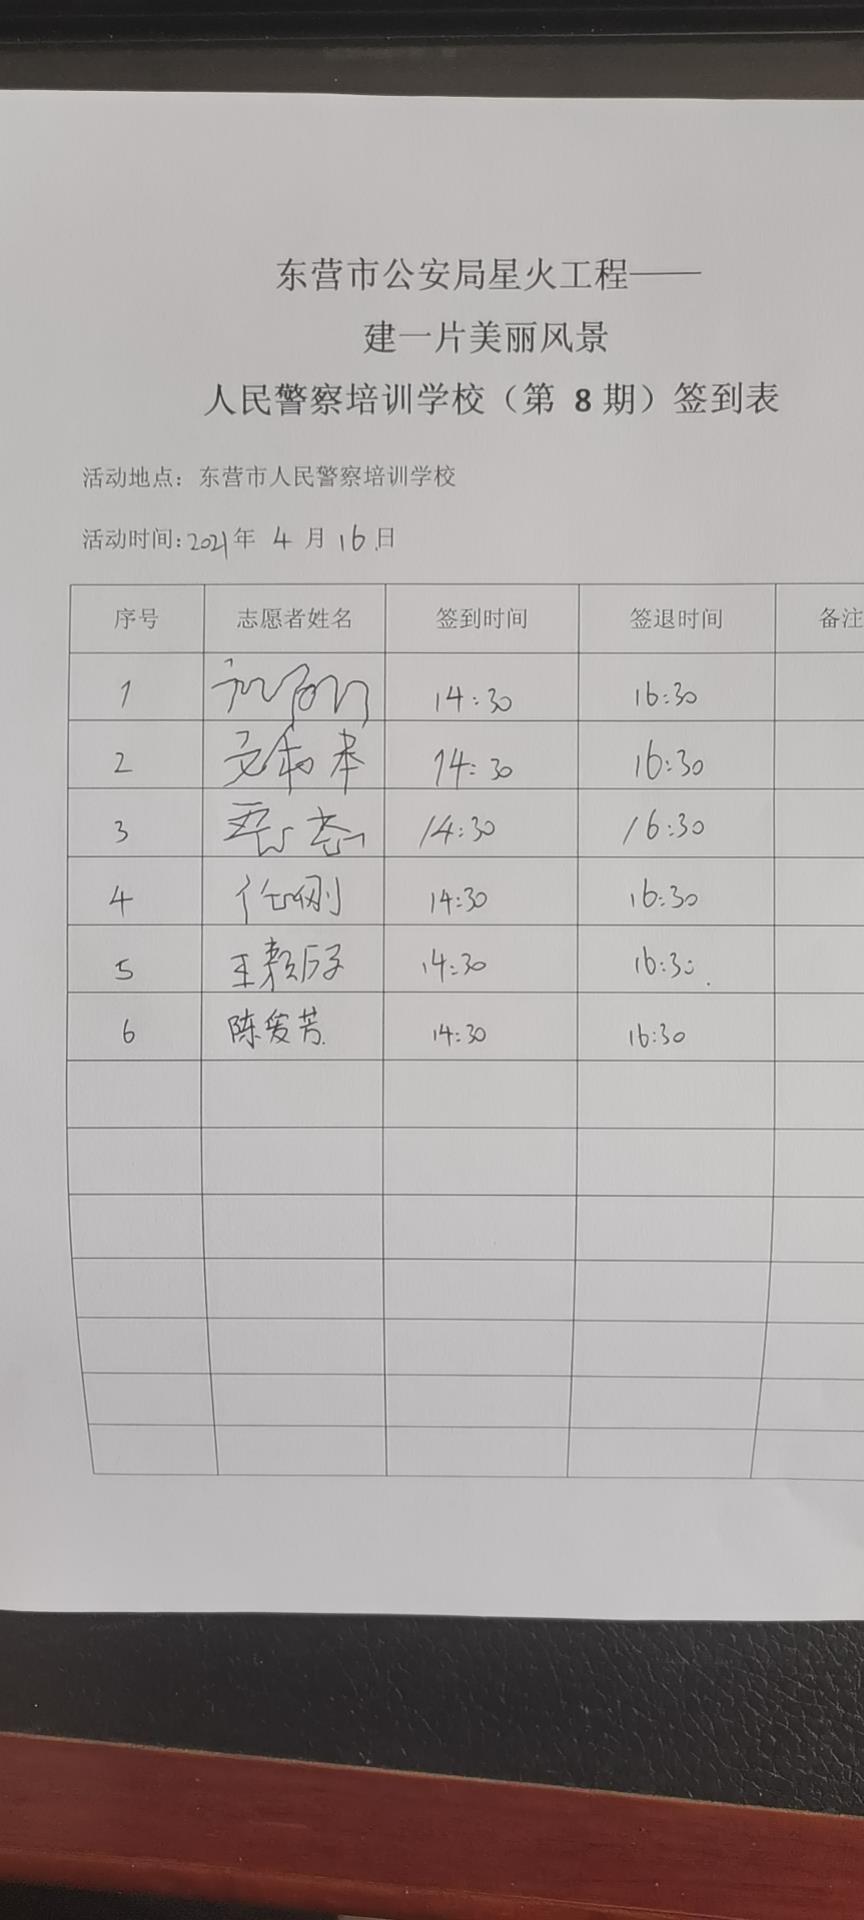 东营市公安局星火工程——
建一片美丽风景
人民警察培训学校（第 8 期）签到表
活动地点：东营市人民警察培训学校
活动时间:2021年 4 月 16 日
序号 志愿者姓名 签到时间 签退时间 备注
1 14:30 16:30
2 14:30 16:30
3 14:30 16:30
4 任刚 14:30 16:30
5 14:30 16:30
6 陈爱芳 14:30 16:30